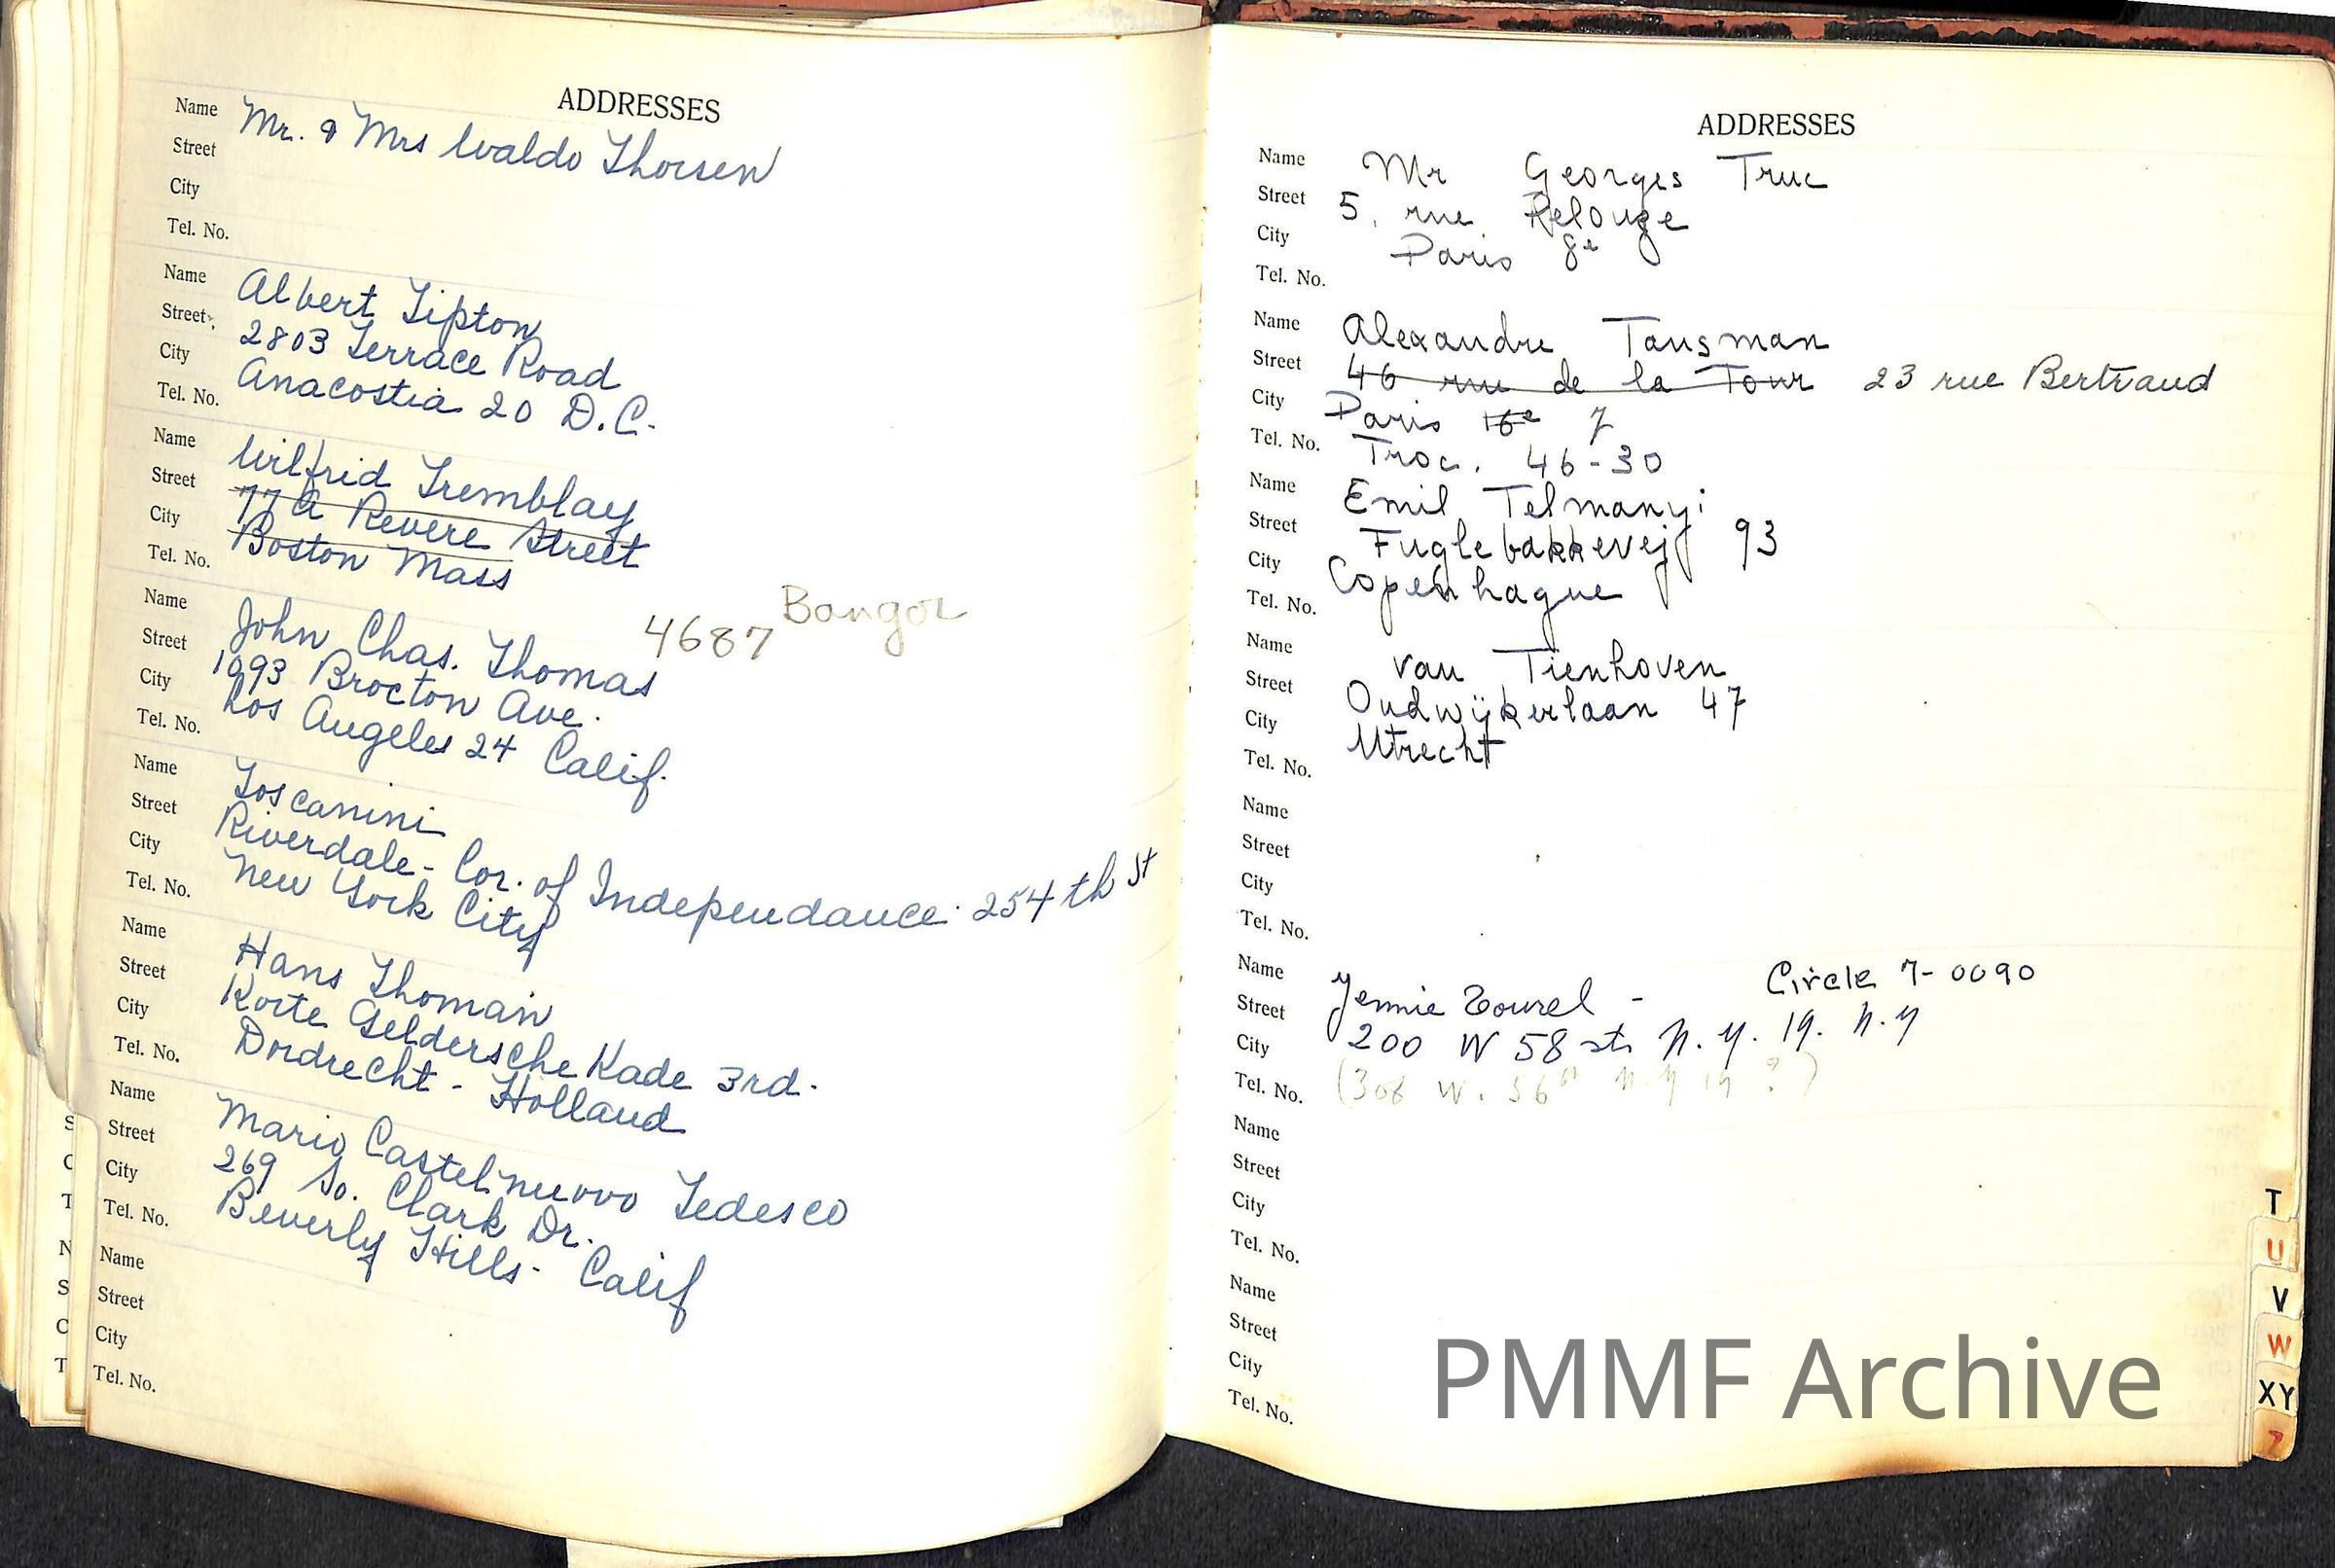 ADDRESSES
Name Mr. & Mrs Waldo Thorsen
Street
City
Tel. No.
Name Albert Tipton
Street 2803 Terrace Road
City Anacostia 20 D.C.
Tel. No.
Name Wilfrid Tremblay
Street 77A Revere Street
City Boston Mass
Tel. No.
4687 Bangor
Name John Chas. Thomas
Street 1093 Brocton Ave.
City Los Angeles 24 Calif.
Tel. No.
Name Toscanini
Street Riverdale - Cor. of Independance 254th St
City New York City
Tel. No.
Name Hans Thoman
Street Korte Geldersche Kade 3rd.
City Dordrecht - Holland
Tel. No.
Name Mario Castelnuovo Tedesco
Street 269 So. Clark Dr.
City Beverly Hills - Calif
Tel. No.
Name
Street
City
Tel. No.
ADDRESSES
Name Mr Georges Truc
Street 5, rue Pelouze
City Paris 8e
Tel. No.
Name Alexandre Tansman
Street 46 rue de la Tour 23 rue Bertrand
City Paris 16e 7
Tel. No. Troc. 46-30
Name Emil Telmanyi
Street Fuglebakkevej 93
City Copenhague
Tel. No.
Name van Tienhoven
Street Oudwijkerlaan 47
City Utrecht
Tel. No.
Name
Street
City
Tel. No.
Name Jennie Tourel - Circle 7-0090
Street 200 W 58 st. N.Y. 19. N.Y
City
Tel. No. (308 W. 56th N.Y 19 ?)
Name
Street
City
Tel. No.
Name
Street
City
Tel. No.
T
U
V
W
XY
Z
S
C
T
N
S
C
T
PMMF Archive